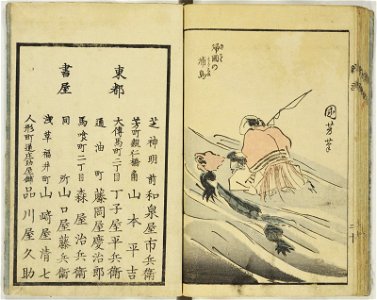 帰国の
浦島
國芳筆
東都
書屋
芝神明前 和泉屋市兵衛
芳町親仁橋角 山本平吉
大傳馬町二丁目 丁子屋平兵衛
通油町 藤岡屋慶治郎
馬喰町二丁目 森屋治兵衛
同所 山口屋藤兵衛
浅草福井町 山崎屋清七
人形町通庄助屋舗 品川屋久助